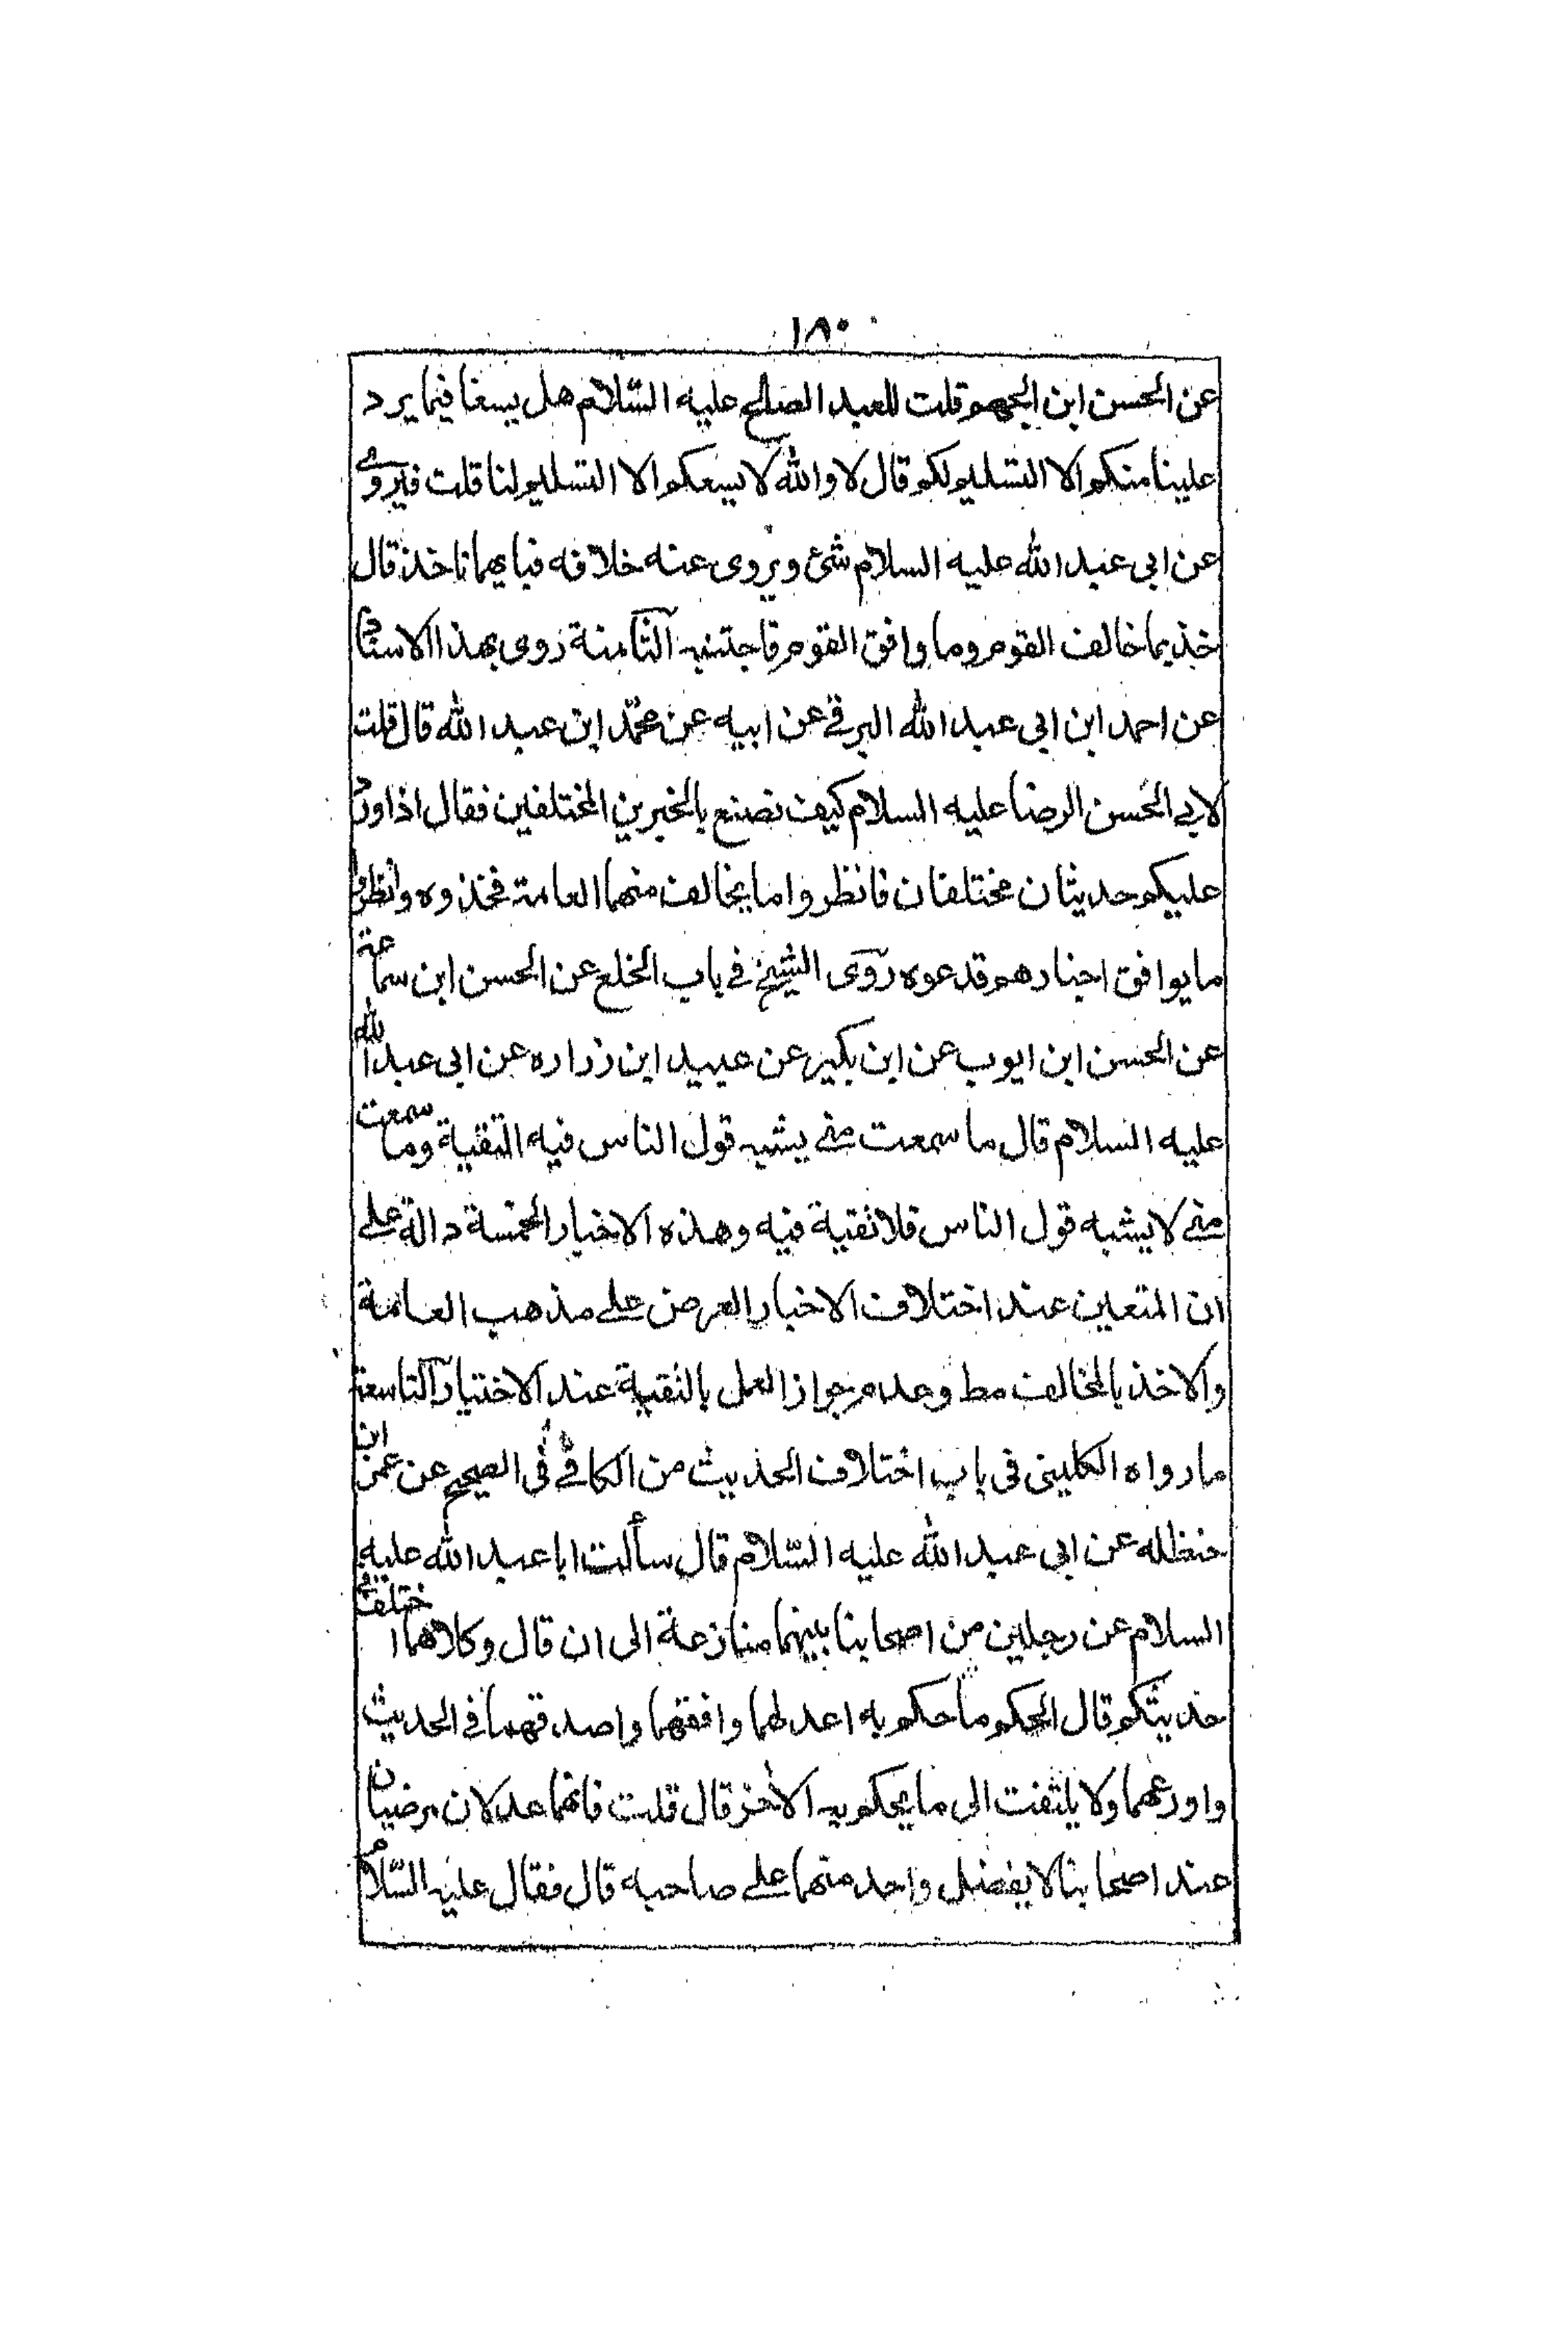 ١٨٠
عن الحسن ابن الجهم قلت للعبد الصالح عليه السّلام هل يسعنا فيما يرد
علينا منكم الا التسليم لكم قال لا والله لا يسعكم الا التسليم لنا قلت فيروى
عن ابى عبد الله عليه السلام شئ ويروى عنه خلافه فبايهما ناخذ قال
خذ بما خالف القوم وما وافق القوم فاجتنبه الثامنة روى بهذا الاسناد
عن احمد ابن ابى عبد الله البرقے عن ابيه عن محمّد ابن عبد الله قال قلت
لابى الحسن الرضا عليه السلام كيف نصنع بالخبرين المختلفين فقال اذا ورد
عليكم حديثان مختلفان فانظروا ما يخالف منهما العامة فخذوه وانظروا
ما يوافق اخبارهم فدعوه روى الشيخ فے باب الخلع عن الحسن ابن سماعة
عن الحسن ابن ايوب عن ابن بكير عن عبيد ابن زراره عن ابى عبد الله
عليه السلام قال ما سمعت منے يشبه قول الناس فيه التقية وما سمعت
منے لا يشبه قول الناس فلا تقية فيه وهذه الاخبار الخمسة دالة علے
ان المتعين عند اختلاف الاخبار العرض علے مذهب العامة
والاخذ بالمخالف مط وعدم جواز العمل بالتقية عند الاختيار التاسعة
ما رواه الكلينى فى باب اختلاف الحديث من الكافے فى الصحيح عن عمر ابن
حنظله عن ابى عبد الله عليه السّلام قال سألت ابا عبد الله عليه
السلام عن رجلين من اصحابنا بينهما منازعة الى ان قال وكلاهما اختلفا فى
حديثكم قال الحكم ما حكم به اعدلهما وافقههما واصدقهما فے الحديث
واورعهما ولا يلتفت الى ما يحكم به الاخر قال قلت فانهما عدلان مرضيان
عند اصحابنا لا يفضل واحد منهما علے صاحبه قال فقال عليه السّلام